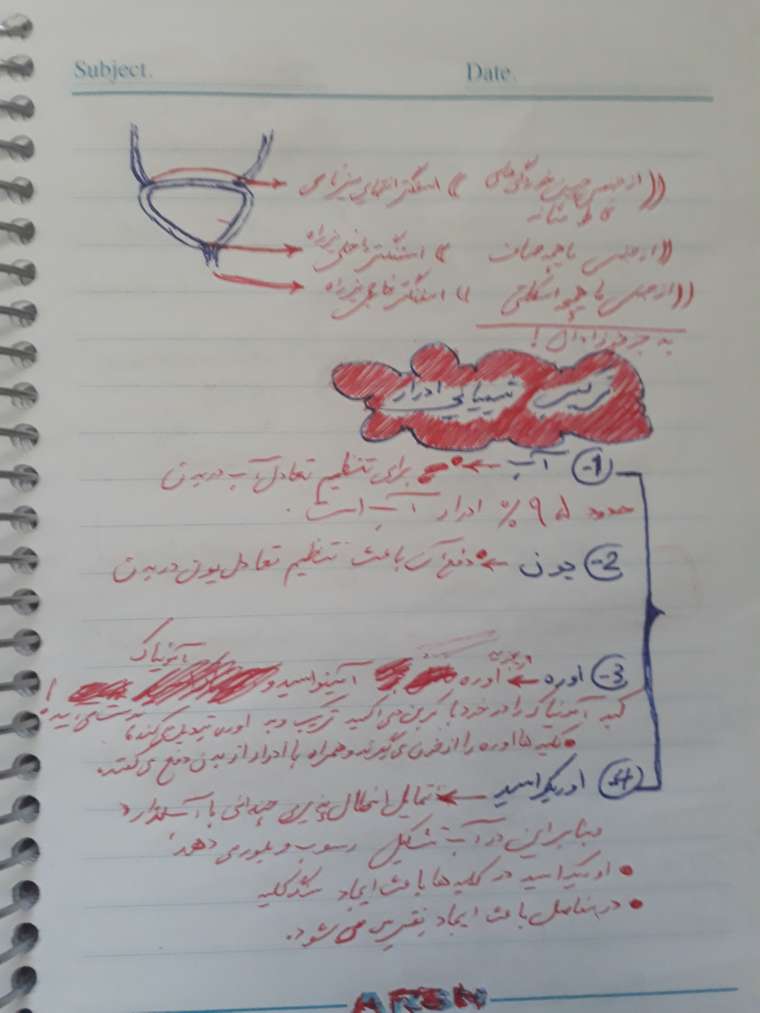 Subject. Date.
((از جنس چین خوردگی های مثانه)) اسفنکتر انتهای میزنای
((از جنس ماهیچه صاف)) اسفنکتر داخلی میزراه
((از جنس ماهیچه اسکلتی)) اسفنکتر خارجی میزراه
به جز نوزادان!
ترکیب شیمیایی ادرار
1- آب ← برای تنظیم تعادل آب در بدن
حدود ۹۵٪ ادرار آب است.
2- یون ← دفع آن باعث تنظیم تعادل یون در بدن
3- اوره ← اوره آمینواسید و
آمونیاک
کبد آمونیاک را در خود با کربن دی اکسید ترکیب و به اوره تبدیل می کند،
• کلیه ها اوره را از خون می گیرند و همراه با ادرار از بدن دفع می کنند.
4- اوریک اسید ← تمایل انحلال پذیری چندانی با آب ندارد
بنابراین در آب تشکیل رسوب و بلور می دهد.
• اوریک اسید در کلیه ها باعث ایجاد سنگ کلیه
• در مفاصل باعث ایجاد نقرس می شود.